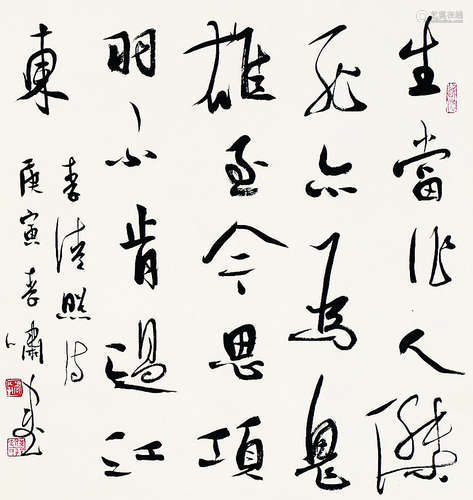 生當作人傑
死亦為鬼
雄至今思項
羽不肯過江
東
李清照詩
庚寅春嘯